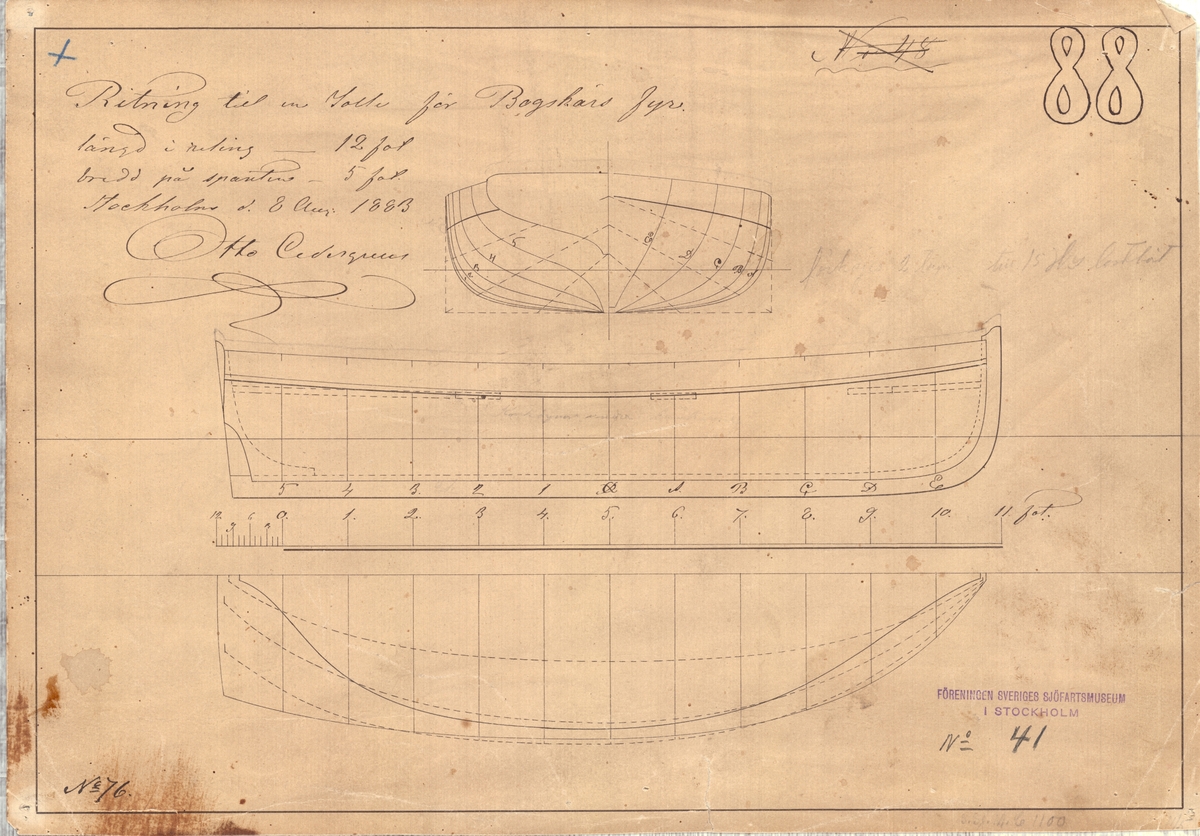 N: 48
88
Ritning till en Jolle för Bogskärs fyr.
längd i reling — 12 fot
bredd på spanten – 5 fot
Stockholm d. 8 Aug. 1883
Otto Cedergren
5 4 3 2 E D C B
5 4 3 2 1 A B C D E
12. 9 6 3 0. 1. 2. 3 4. 5. 6. 7. 8. 9. 10. 11. fot.
FÖRENINGEN SVERIGES SJÖFARTSMUSEUM
I STOCKHOLM
No 41
No 76.